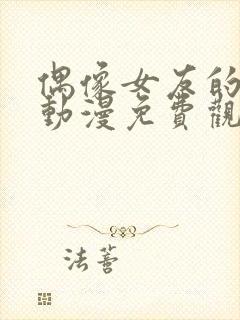 偶像女友的
動漫免費觀
法蓍